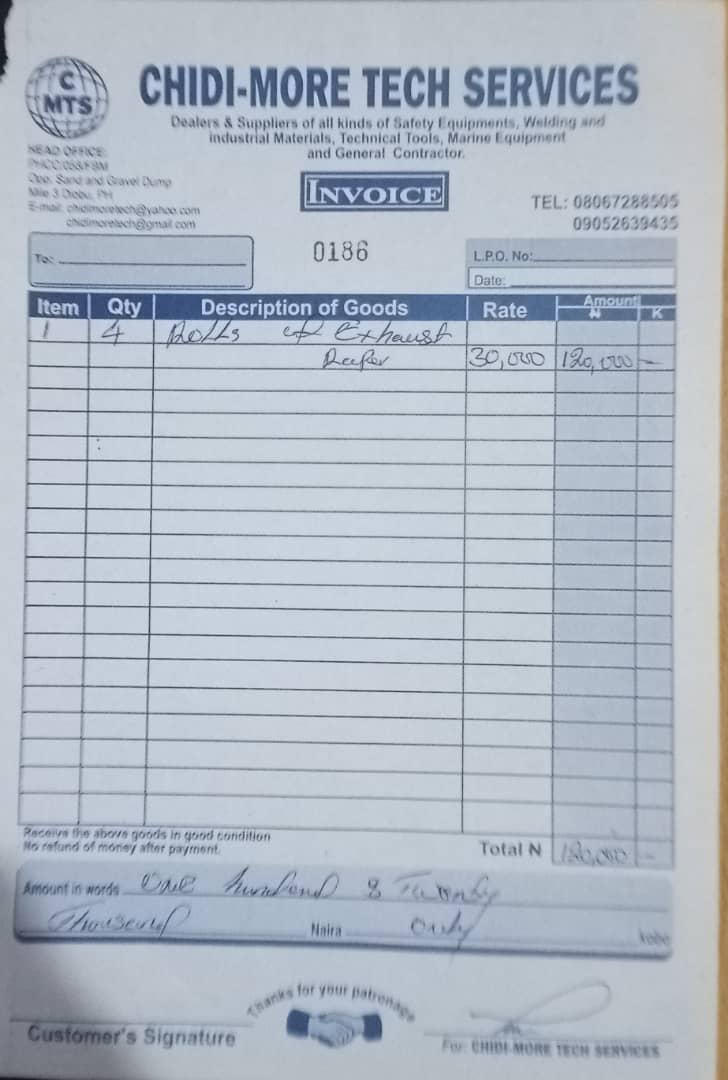 C
MTS
CHIDI-MORE TECH SERVICES
Dealers & Suppliers of all kinds of Safety Equipments, Welding and
Industrial Materials, Technical Tools, Marine Equipment
and General Contractor.
HEAD OFFICE:
Opp. Sand and Gravel Dump
Mile 3 Diobu, PH
E-mail: chidimoretech@yahoo.com
chidimoretech@gmail.com
INVOICE
TEL: 08067288505
09052639435
To:
0186
L.P.O. No:
Date:
Item Qty Description of Goods Rate Amount
N K
1 4 Rolls of Exhaust
30,000 120,000 -
Receive the above goods in good condition
No refund of money after payment.
Total N 120,000 -
Amount in words One hundred & Twenty
Thousand Naira Only kobo
Thanks for your patronage
Customer's Signature
For: CHIDI-MORE TECH SERVICES